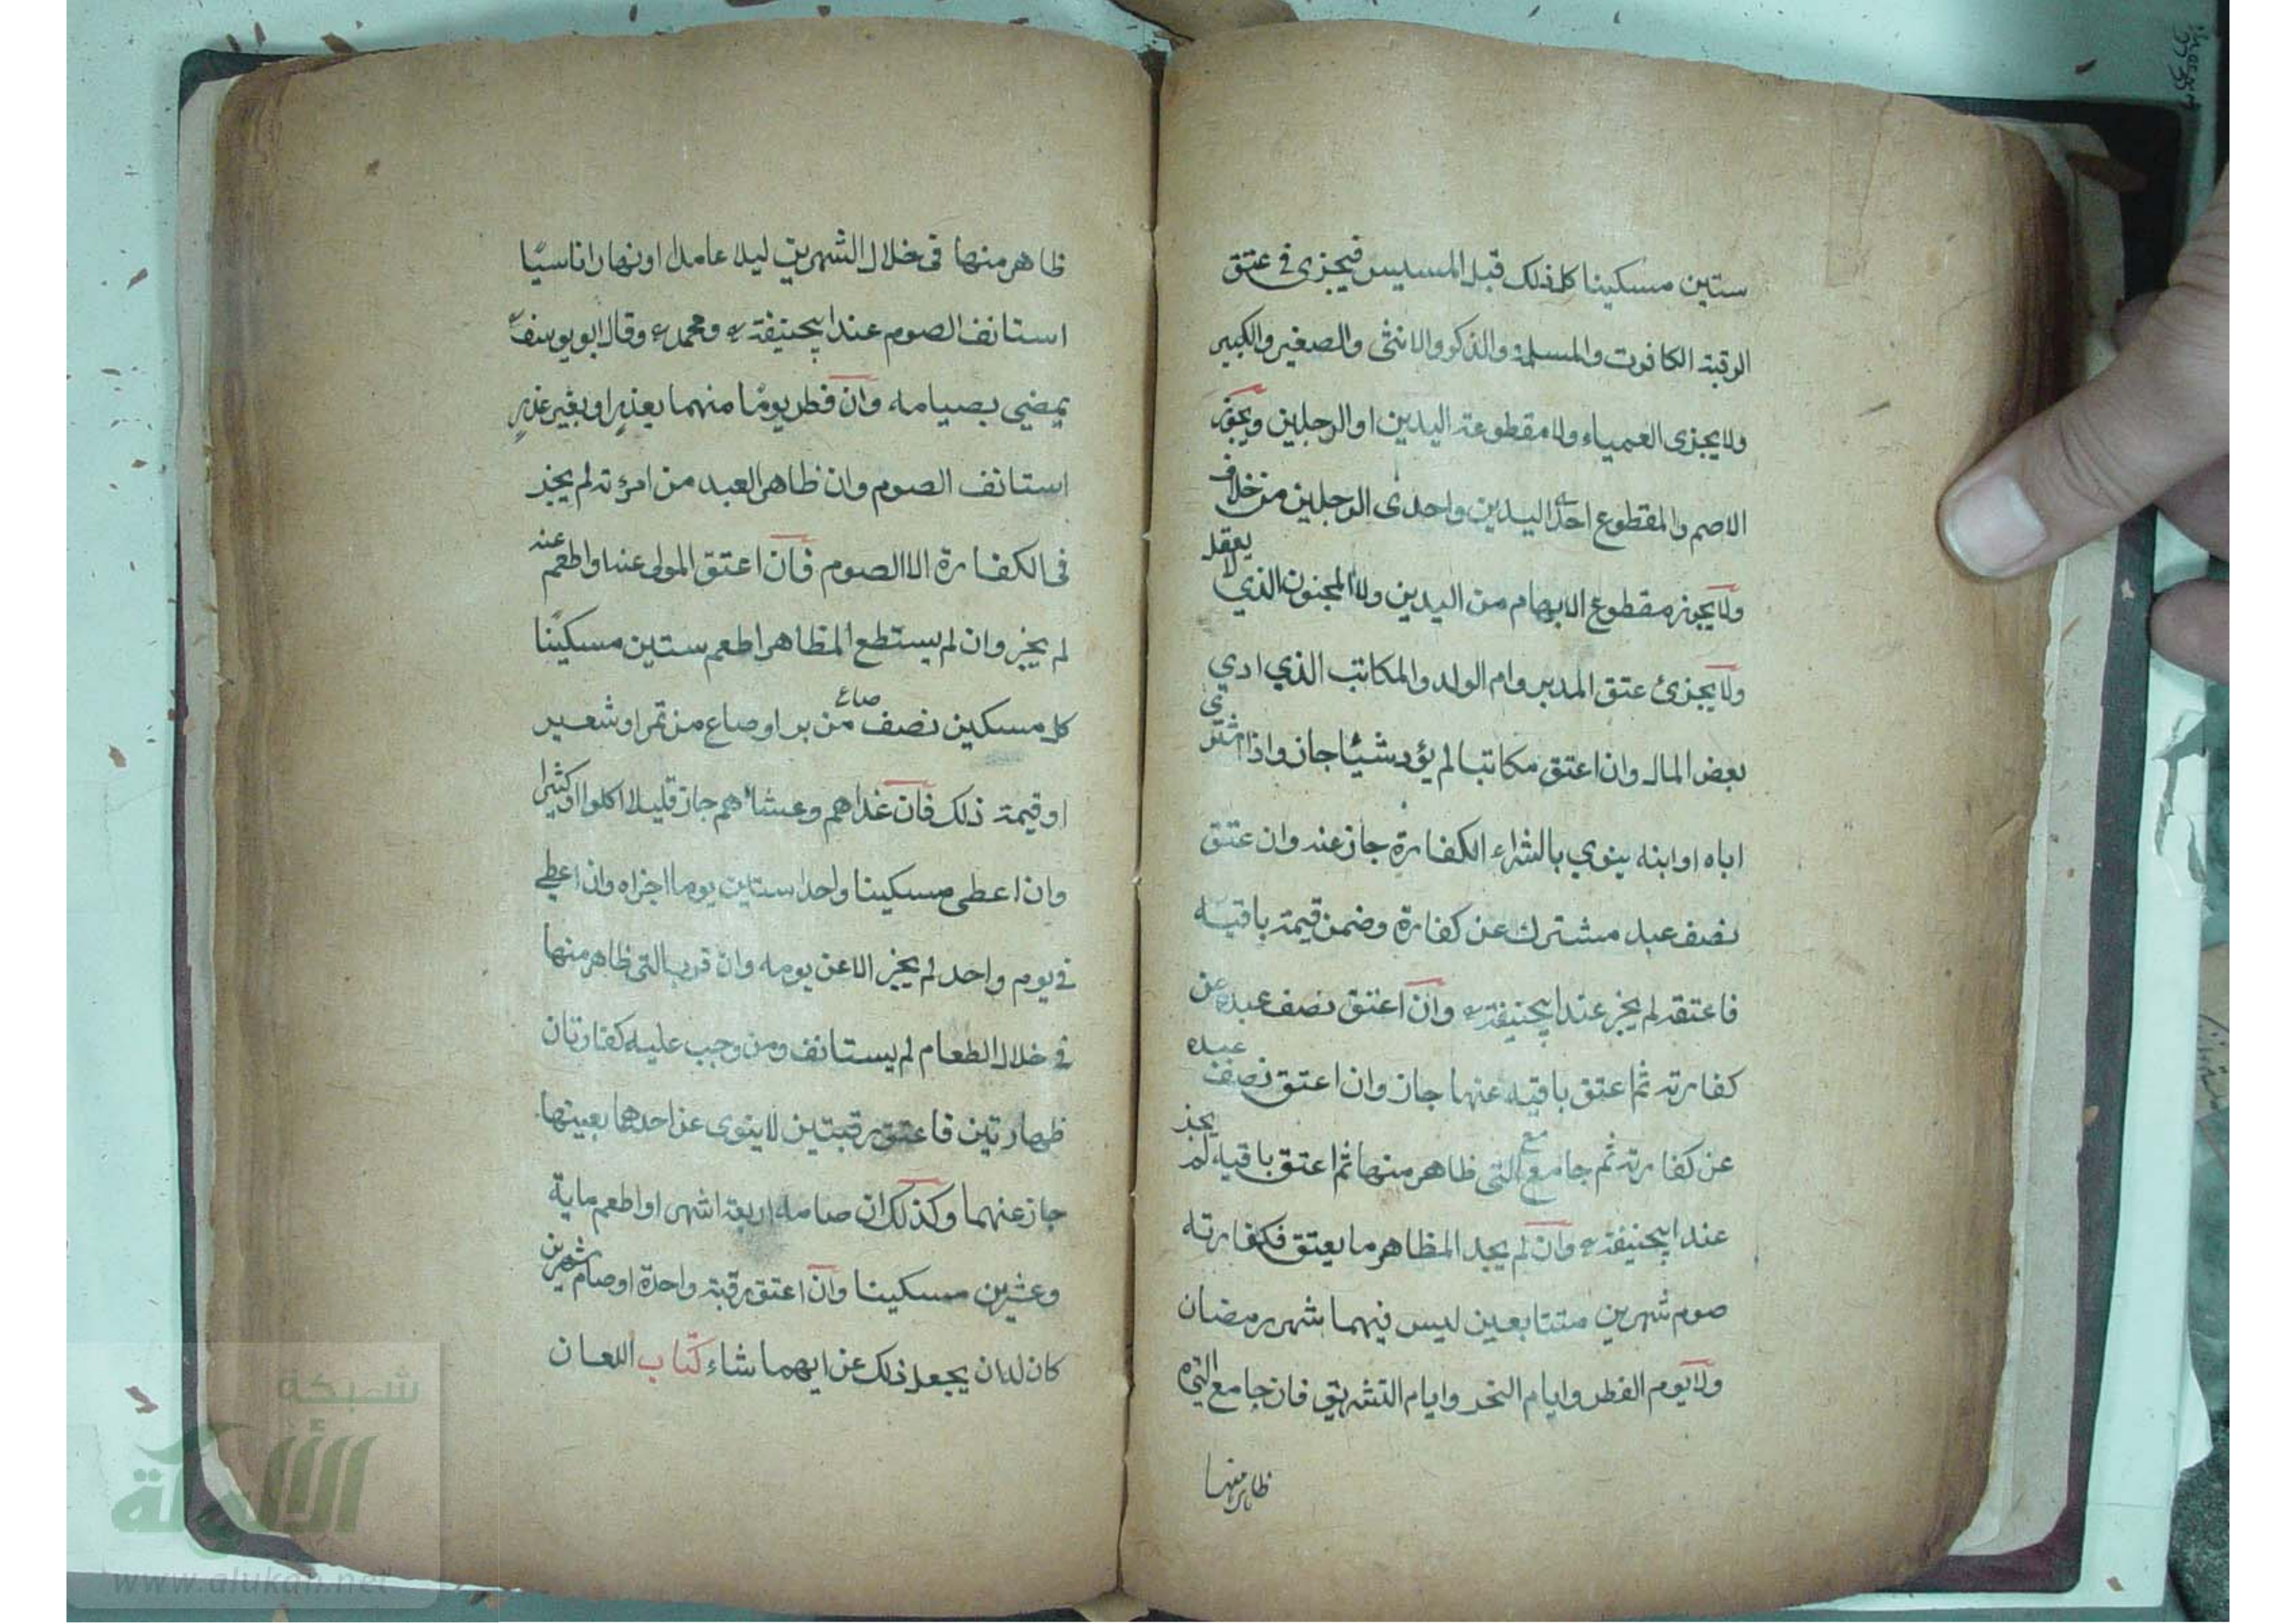 ستين مسكينا كل ذلك قبل المسيس فيجزى فى عتق
الرقبة الكافرت والمسلمة والذكر والانثى والصغير والكبير
ولا يجزى العمياء ولا مقطوعة اليدين او الرجلين ويجوز
الاصم والمقطوع احد اليدين واحدى الرجلين من خلاف
ولا يجوز مقطوع الابهام من اليدين ولا المجنون الذي لا يعقل
ولا يجزئ عتق المدبر وام الولد والمكاتب الذي ادي
بعض المال وان اعتق مكاتبا لم يؤد شيئا جاز واذا اشترى
اباه او ابنه ينوي بالشراء الكفارة جاز عنه وان عتق
نصف عبد مشترك عن كفارة وضمن قيمة باقيه
فاعتقه لم يجز عند ابيحنيفة وان اعتق نصف عبده عن
كفارته ثم اعتق باقيه عنها جاز وان اعتق نصف عبده
عن كفارته ثم جامع التى ظاهر منها ثم اعتق باقيه لم يجز
عند ابيحنيفة وان لم يجد المظاهر ما يعتق فكفارته
صوم شهرين متتابعين ليس فيهما شهر رمضان
ولا يوم الفطر وايام النحر وايام التشريق فان جامع التى
ظاهر منها
ظاهر منها فى خلال الشهرين ليلا عامدا او نهارا ناسيا
استانف الصوم عند ابيحنيفة ومحمد وقال ابو يوسف
يمضي بصيامه وان فطر يوما منهما بعذر او بغير عذر
استانف الصوم وان ظاهر العبد من امرئته لم يجز
فى الكفارة الا الصوم فان اعتق المولى عنه او اطعم عنه
لم يجز وان لم يستطع المظاهر اطعم ستين مسكينا
كل مسكين نصف صاع من بر او صاع من تمر او شعير
او قيمة ذلك فان غداهم وعشاهم جاز قليلا اكلوا او كثيرا
وان اعطى مسكينا واحدا ستين يوما اجزاه وان اعطي
فى يوم واحد لم يجز الا عن يومه وان قرب التى ظاهر منها
فى خلال الطعام لم يستانف ومن وجب عليه كفارتان
ظهارتين فاعتق رقبتين لا ينوى عن احدهما بعينها
جاز عنهما وكذلك ان صامه اربعة اشهر او اطعم ماية
وعشرين مسكينا وان اعتق رقبة واحدة او صام شهرين
كان له ان يجعل ذلك عن ايهما شاء كتاب اللعان
شبكة
الألوكة
www.alukah.net